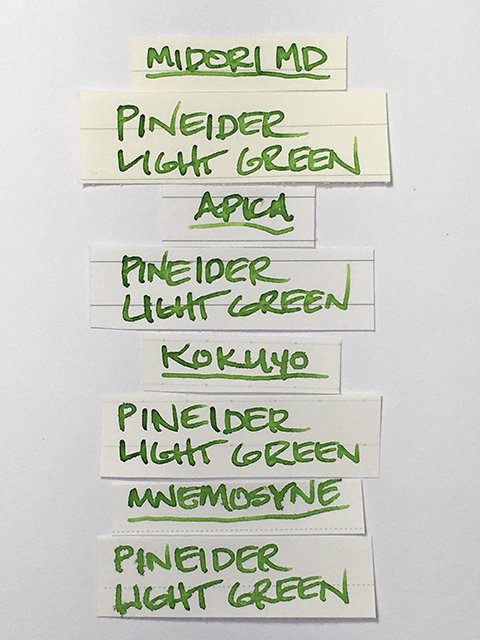 MIDORI MD
PINEIDER
LIGHT GREEN
APICA
PINEIDER
LIGHT GREEN
KOKUYO
PINEIDER
LIGHT GREEN
MNEMOSYNE
PINEIDER
LIGHT GREEN